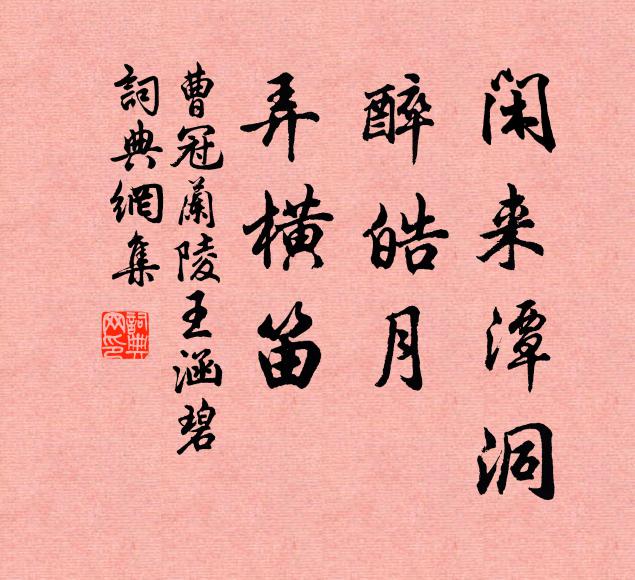 閑来潭洞
醉皓月
弄橫笛
曹冠蘭陵王涵碧
詞典網集
詞典网印